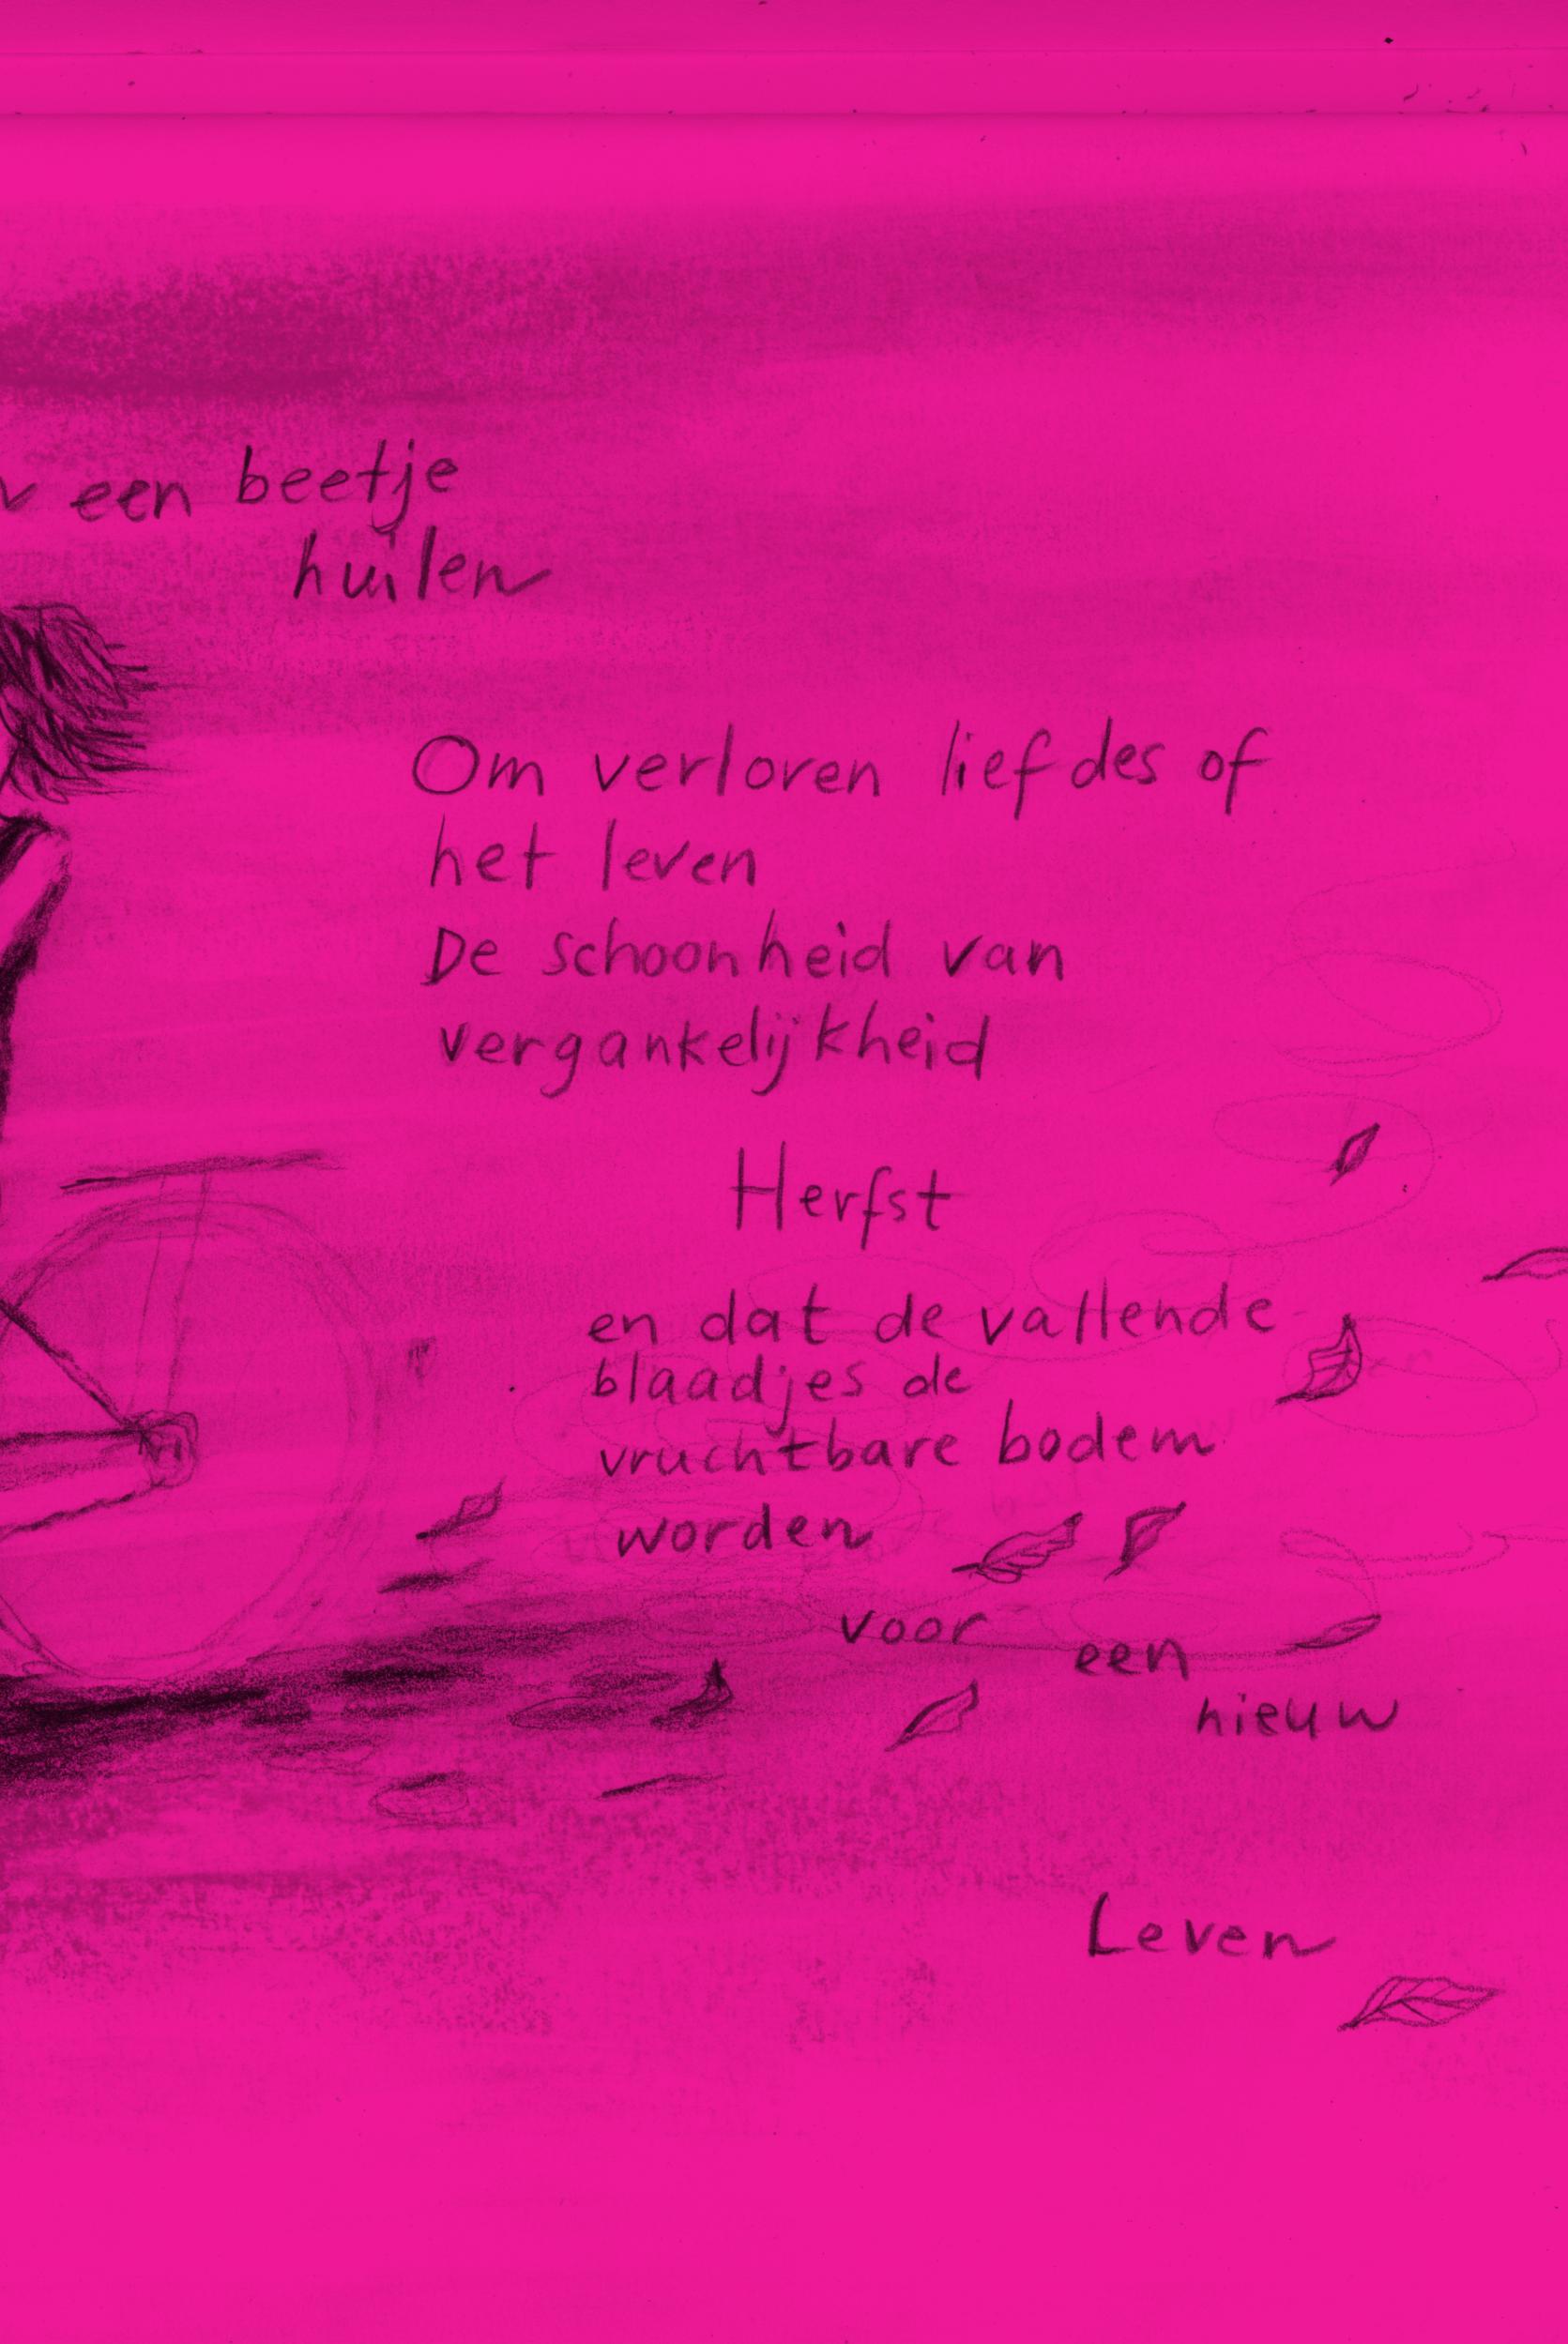 een beetje
huilen
Om verloren liefdes of
het leven
De schoonheid van
vergankelijkheid
Herfst
en dat de vallende
blaadjes de
vruchtbare bodem
worden
voor een
nieuw
Leven